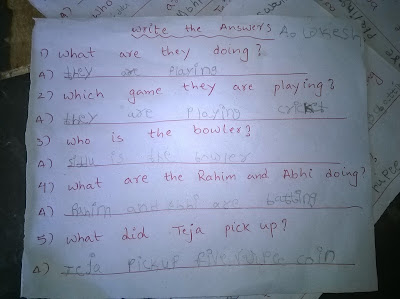 write the Answers A. Lokesh
1) what are they doing?
A) they are Playing
2) which game they are playing?
A) they are Playing cricket
3) who is the bowler?
A) Siddu is the bowler
4) what are the Rahim and Abhi doing?
A) Rahim and Abhi are batting
5) what did Teja pick up?
A) Teja Pickup five rupee coin